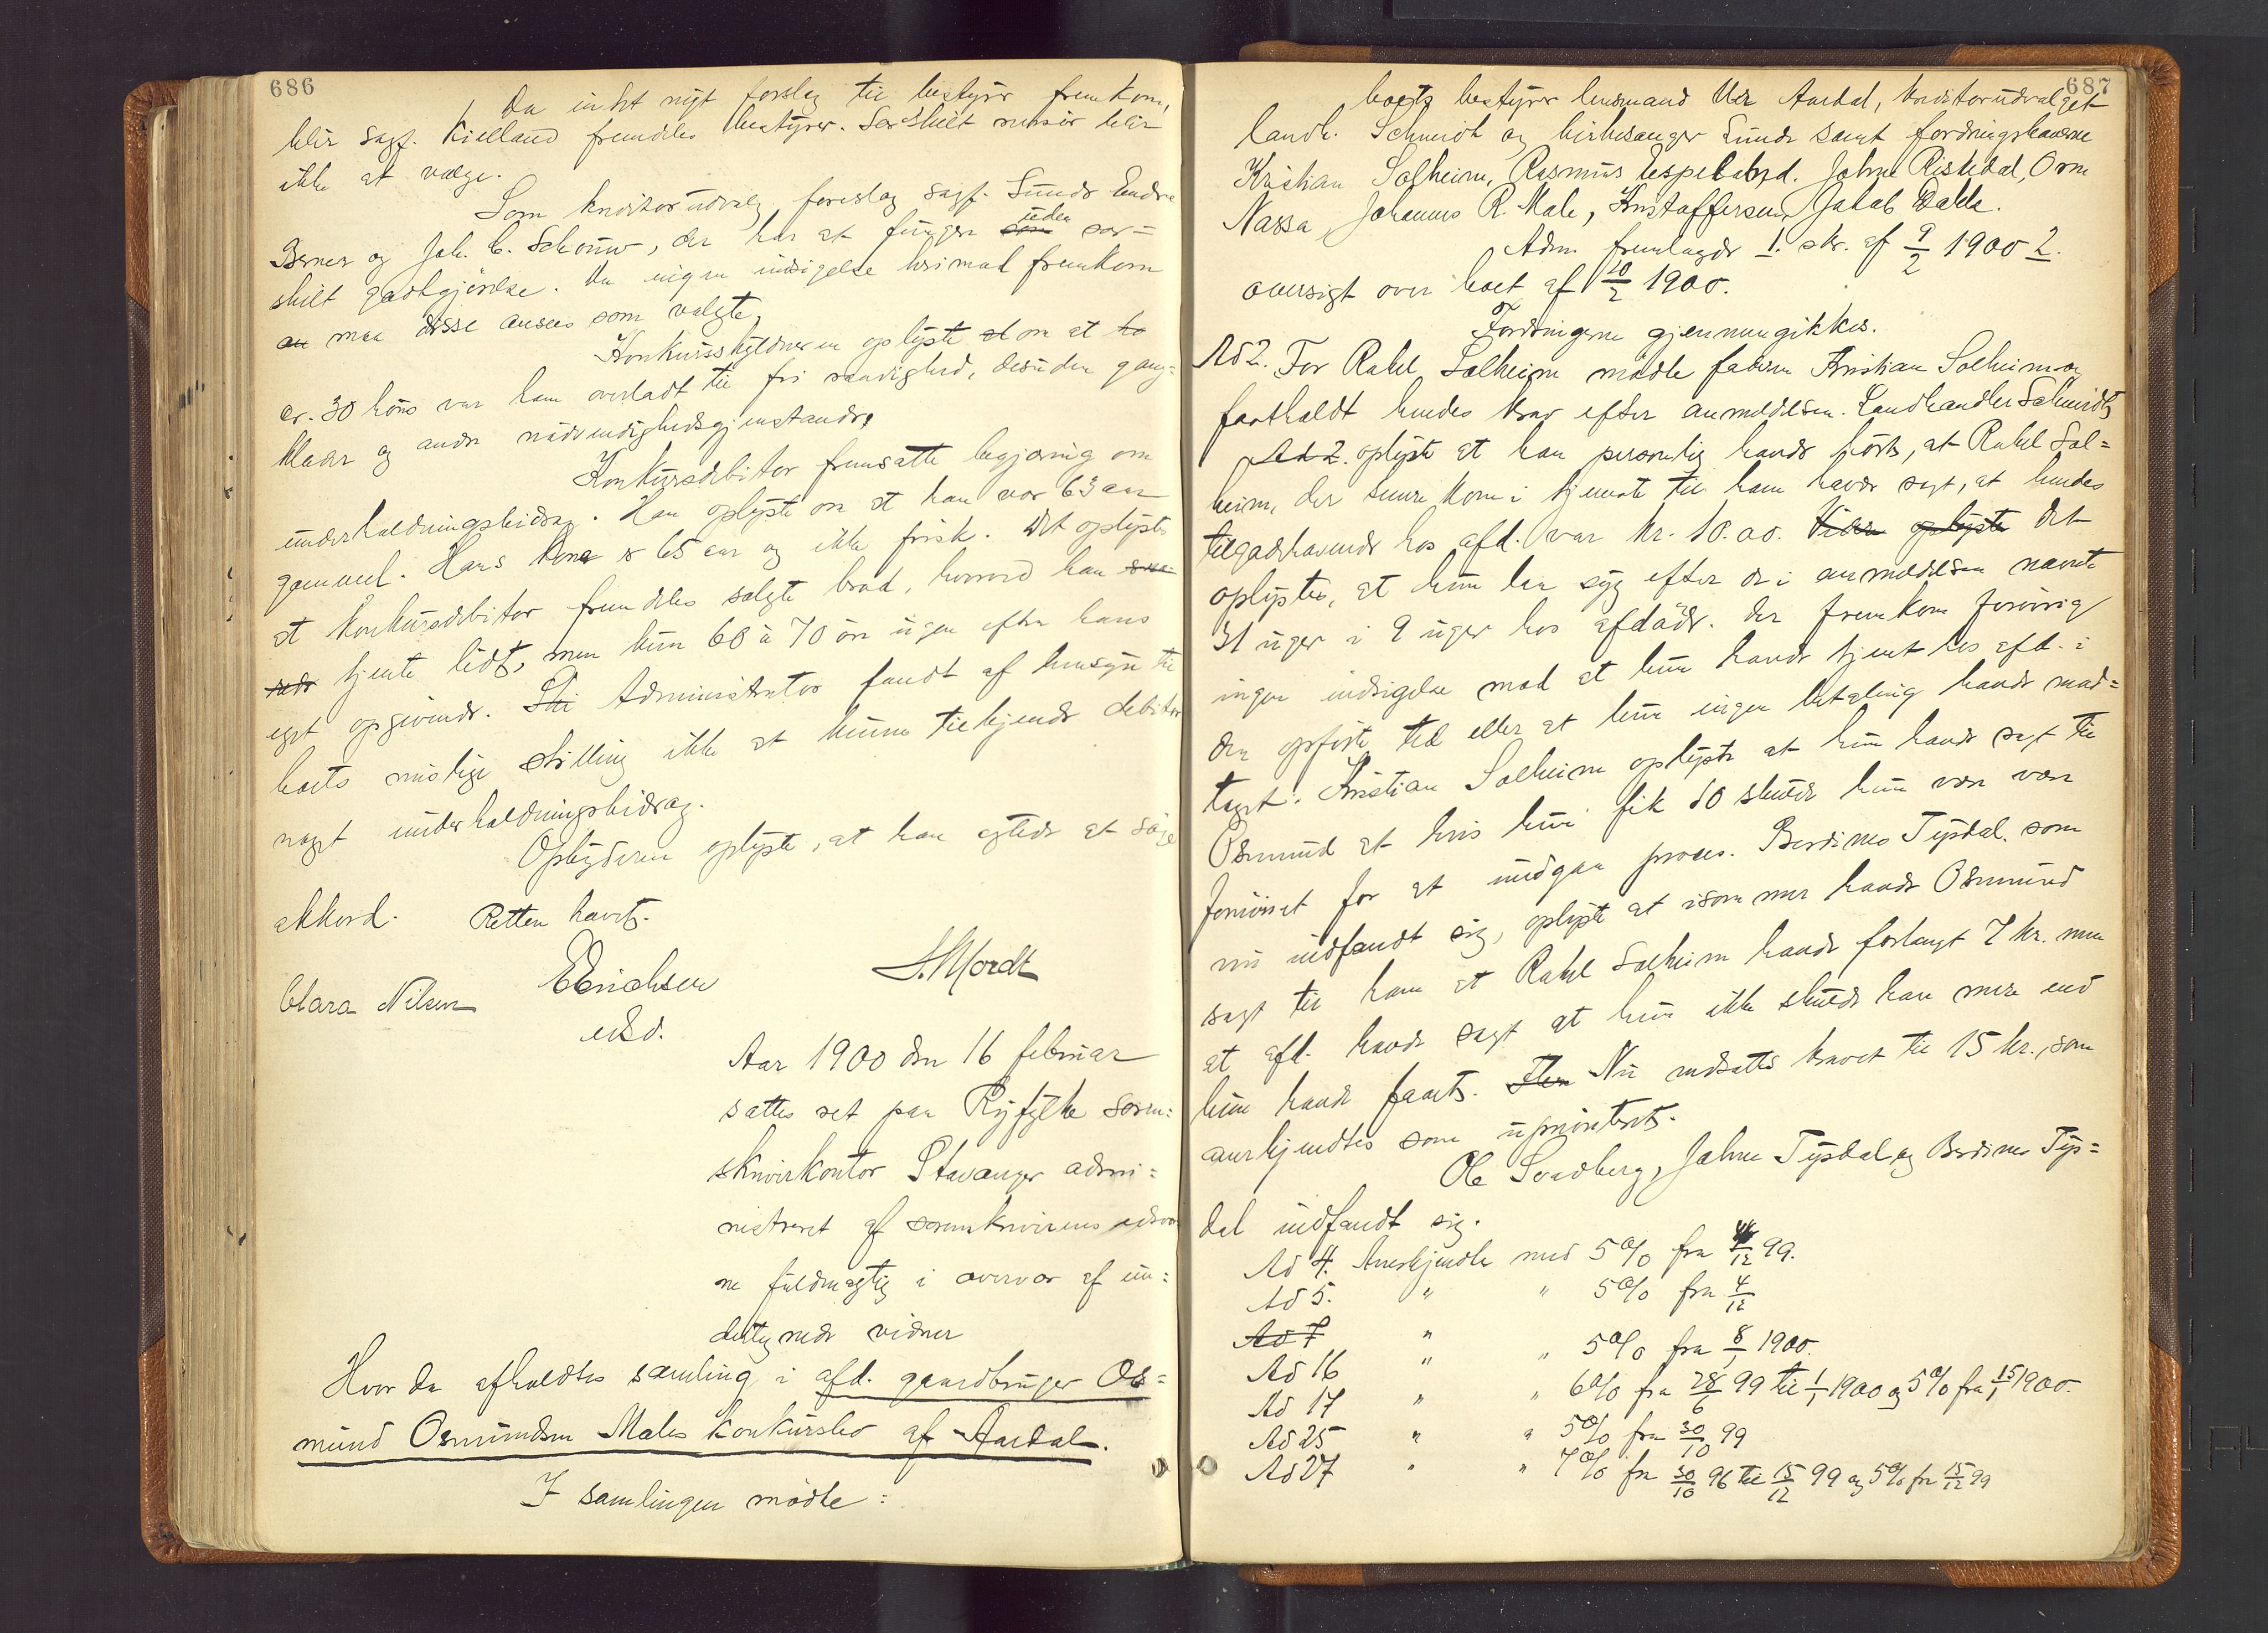 686
Da intet nyt forslag til bestyrer fremkom,
blir sagf. Kielland fremdeles bestyrer. Særskilt revisor blir
ikke at vælge.
Som kreditorudvalg foreslog sagf. Sunde Endre
Berner og Joh. C. Schouw, der har at fungere uden sær=
skilt godtgjørelse. Da ingen indsigelse herimod fremkom
maa disse ansees som valgte.
Konkursskyldneren oplyste at
cr. 30 høns var ham overladt til fri raadighed, desuden gang=
klæder og andre nødvendighedsgjenstande.
Konkursdebitor fremsatte begjæring om
underholdningsbidrag. Han oplyste at han var 63 aar
gammel. Hans kone er 65 aar og ikke frisk. Det oplystes
at konkursdebitor fremdeles solgte brød, hvorved han
tjente lidt, men kun 60 à 70 øre ugen efter hans
eget opgivende. Administrator fandt af hensyn til
boets mislige stilling ikke at kunne tilkjende debitor
noget underholdningsbidrag.
Opbyderen oplyste, at han agtede at søge
akkord. Retten hævet.
E Erichsen S. Mordt
Clara Nilsen
ed.
Aar 1900 den 16 februar
sattes ret paa Ryfylke soren=
skriverkontor Stavanger admi=
nistreret af sorenskriverens edsvor
ne fuldmægtig i overvær af un=
dertegnede vidner
Hvor da afholdtes samling i afd. gaardbruger Os=
mund Osmundsen Males konkursbo af Aardal.
I samlingen mødte:
687
boets bestyrer lensmand Aardal, kreditorudvalget
landh. Schmidt og kirkesanger Sunde samt fordringshaverne
Kristian Solheim, Rasmus Espeland, Johne Riskedal, Orm
Nassa, Johannes R. Male, Kristoffersen, Jakob Dahle.
Adm. fremlagde 1. skr. af 9/2 1900 2.
oversigt over boet af 10/2 1900.
Fordringerne gjennemgikkes.
Ad 2. For Rakel Solheim mødte faderen Kristian Solheim og
fastholdt hendes krav efter anmeldelsen. Landhandler Schmidt
Ad 2. oplyste at han personlig havde hørt, at Rakel Sol=
heim, der senere kom i tjeneste til ham havde sagt, at hendes
tilgodehavende hos afd. var kr. 10.00. Videre oplyste Det
oplystes, at hun laa syg efter de i anmeldelsen nævnte
31 uger i 9 uger hos afdøde. Der fremkom forøvrig
ingen indsigelse mod at hun havde tjent hos afd. i
den opførte tid eller at hun ingen betaling havde mod=
taget. Kristian Solheim oplyste at hun havde sagt til
Osmund at hvis hun fik 10 skulde hun være
fornøiet for at undgaa proces. Berdines Tysdal som
nu indfandt sig, oplyste at havde Osmund
sagt til ham at Rakel Solheim havde forlangt 7 kr. men
at afd. havde sagt at hun ikke skulde have mere end
hun havde faaet. Nu nedsattes kravet til 15 kr., som
anerkjendtes som uprioriteret.
Ole Svadberg, Johne Tysdal og Berdines Tys=
dal indfandt sig.
Ad 4. Anerkjendtes med 5% fra 4/12 99.
Ad 5. " " 5% fra 4/12
Ad 7
Ad 16 " " 5% fra 8/1 1900.
Ad 17 " " 6% fra 28/6 99 til 1/1 1900 og 5% fra 15/1 1900.
Ad 25 " " 5% fra 30/10 99
Ad 27 " " 7% fra 30/10 96 til 15/12 99 og 5% fra 15/12 99